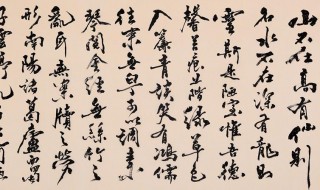 山不在高有仙則
名水不在深有龍則
靈斯是陋室惟吾德
馨苔痕上階綠草色
入簾青談笑有鴻儒
往來無白丁可以調素
琴閱金經無絲竹之
亂耳無案牘之勞
形南陽諸葛廬西蜀
子雲亭孔